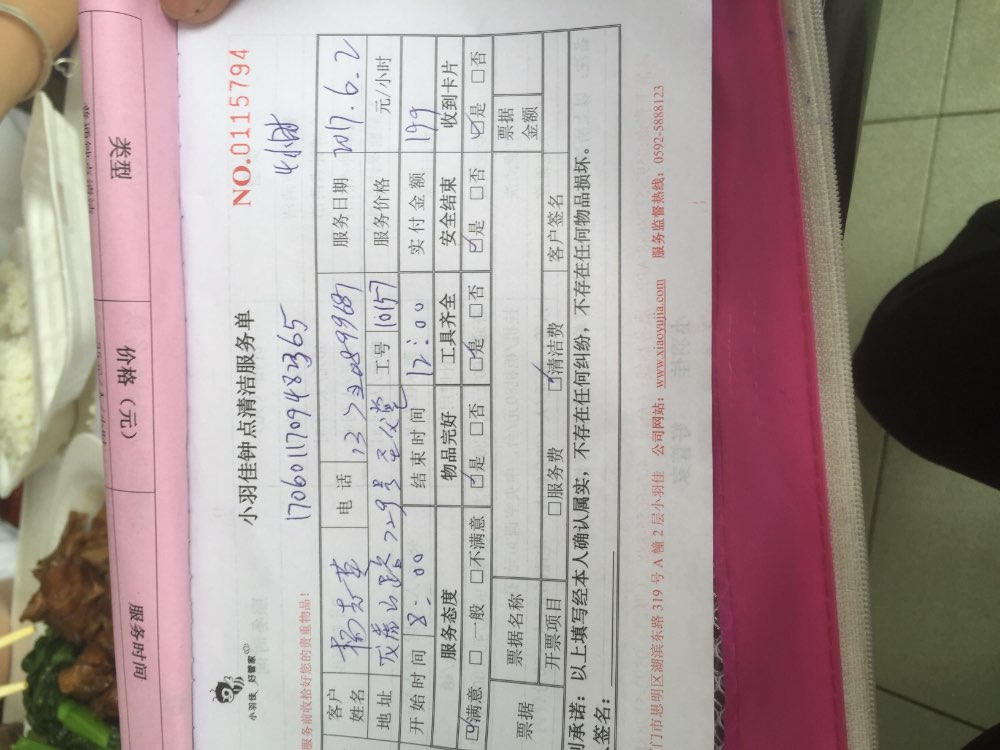 NO.0115794
小羽佳 好管家
小羽佳钟点清洁服务单
1706011709482365
4小时
服务前收拾好您的贵重物品!
客户姓名 电话 服务日期 2017.6.2
地址 729号 工号 10157 服务价格 元/小时
开始时间 8:00 结束时间 12:00 实付金额 199
服务态度 物品完好 工具齐全 安全结束 收到卡片
☑满意 □一般 □不满意 ☑是 □否 ☑是 □否 ☑是 □否 ☑是 □否
票据 票据名称 票据金额
开票项目 □服务费 ☑清洁费 客户签名
承诺：以上填写经本人确认属实，不存在任何纠纷，不存在任何物品损坏。
签名：
门市思明区湖滨东路 319 号 A 幢 2 层小羽佳 公司网站：www.xiaoyujia.com 服务监督热线：0592-5888123
服务时间 价格（元） 类型